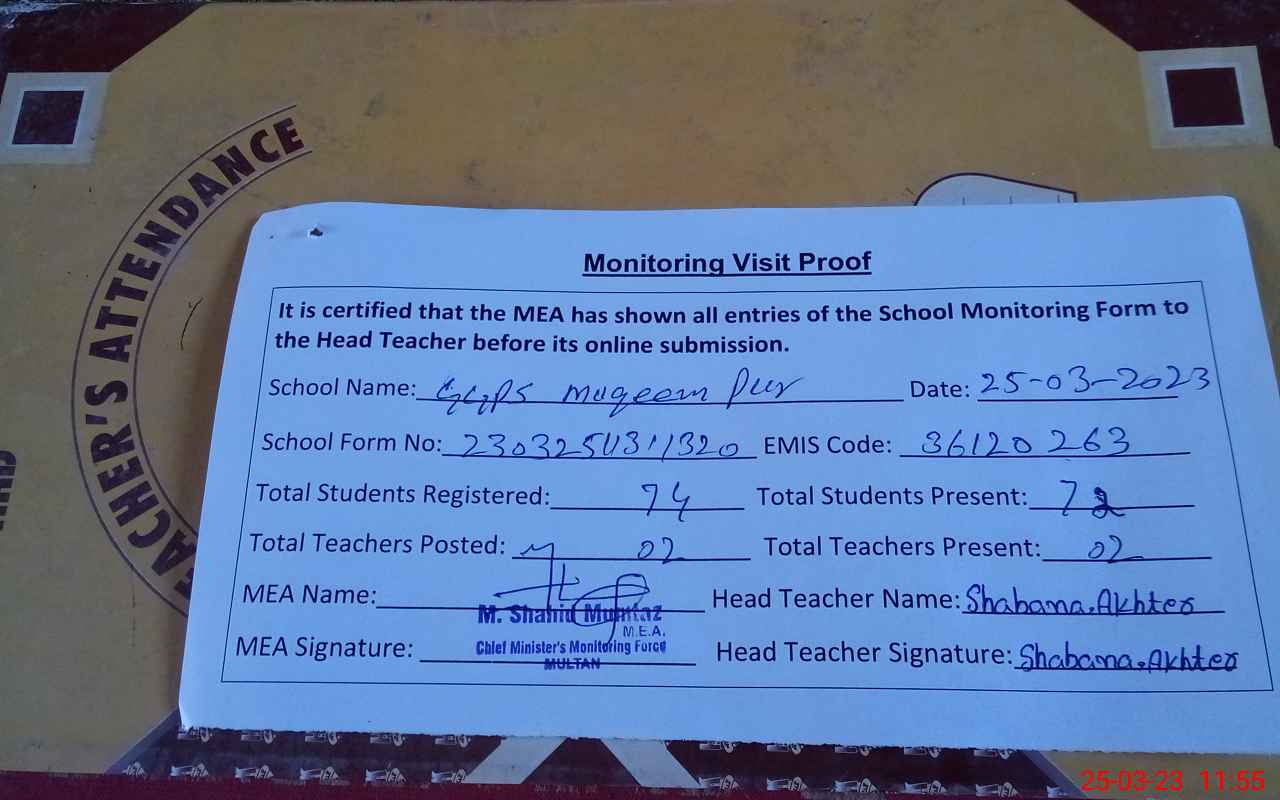 TEACHER'S ATTENDANCE
Monitoring Visit Proof
It is certified that the MEA has shown all entries of the School Monitoring Form to
the Head Teacher before its online submission.
School Name: GGPS Muqeem Pur Date: 25-03-2023
School Form No: EMIS Code: 36120263
Total Students Registered: 74 Total Students Present: 72
Total Teachers Posted: 02 Total Teachers Present: 02
MEA Name: Head Teacher Name: Shabana.Akhter
M. Shahid Mumtaz
M.E.A.
MEA Signature: Chief Minister's Monitoring Force Head Teacher Signature: Shabana.Akhter
MULTAN
25-03-23 11:55